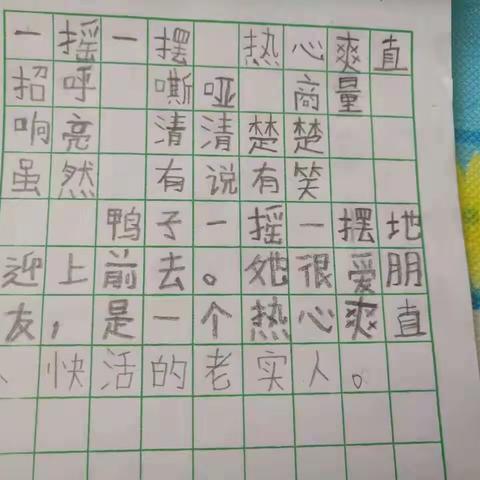 一摇一摆 热心爽直
招呼 嘶哑 商量
响亮 清清楚楚
虽然 有说有笑
鸭子一摇一摆地
迎上前去。她很爱朋
友，是一个热心爽直
、快活的老实人。